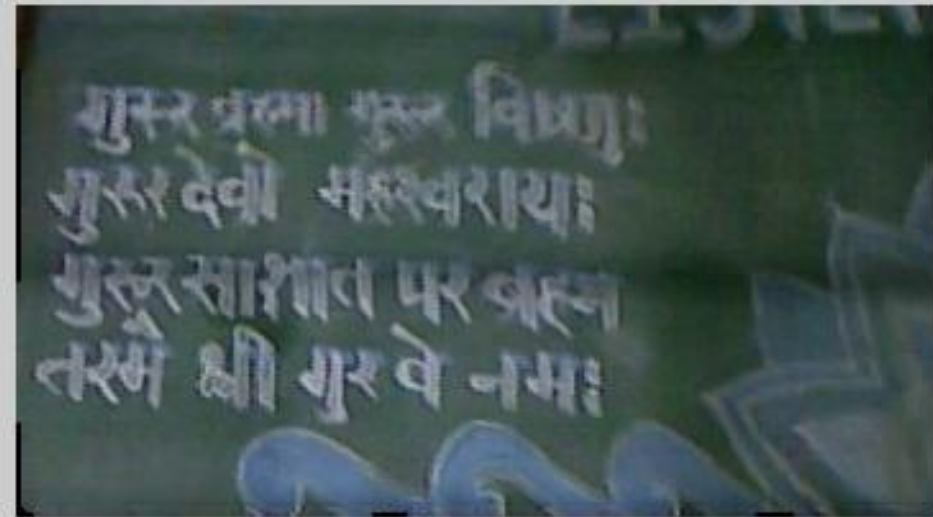 गुरुर ब्रम्हा गुरूर विष्णुः
गुरुर देवो महेश्वरायः
गुरुर साक्षात पर ब्रह्म
तस्मै श्री गुर वे नमः